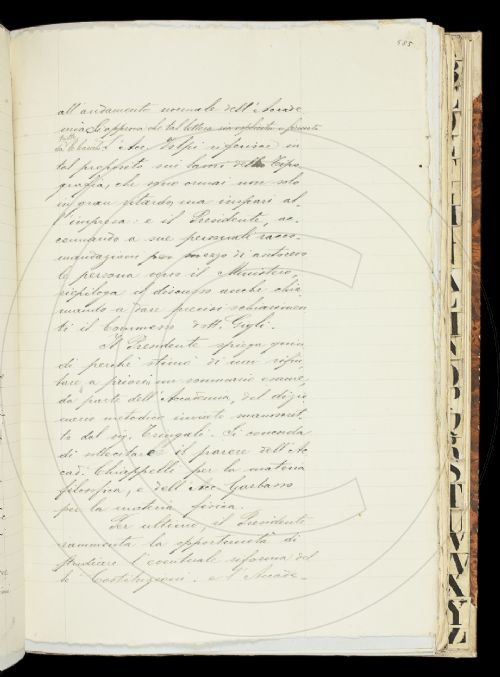 585
all'andamento normale dell'Accade
mia. Si approva che tal lettera sia
tutte
l'Acc. Volpi riferisce in
tal proposito sui lavori della Tipo
grafia, che sono ormai non solo
in gran ritardo, ma impari al-
l'impresa: e il Presidente, ac-
cennando a sue personali racco-
mandazioni per mezzo di autorevo
le persona verso il Ministero,
riepiloga il discorso anche chia-
mando a dare precisi schiarimen
ti il Commesso dott. Gigli.
Il Presidente spiega quin
di perché stimò di non rifiu
tare a priori un sommario esame,
da parte dell'Accademia, del dizio
nario metodico inviato manoscrit
to dal sig. Tringali. Si concorda
di interpellare il parere dell'Ac
cad. Chiappelli per la materia
filosofica, e dell'Acc. Garbasso
per la materia fisica.
Per ultimo, il Presidente
rammenta la opportunità di
studiare l'eventuale riforma del
le Costituzioni: e l'Accade-
A B C D E F G H I K L M N O P Q R S T U V W X Y Z